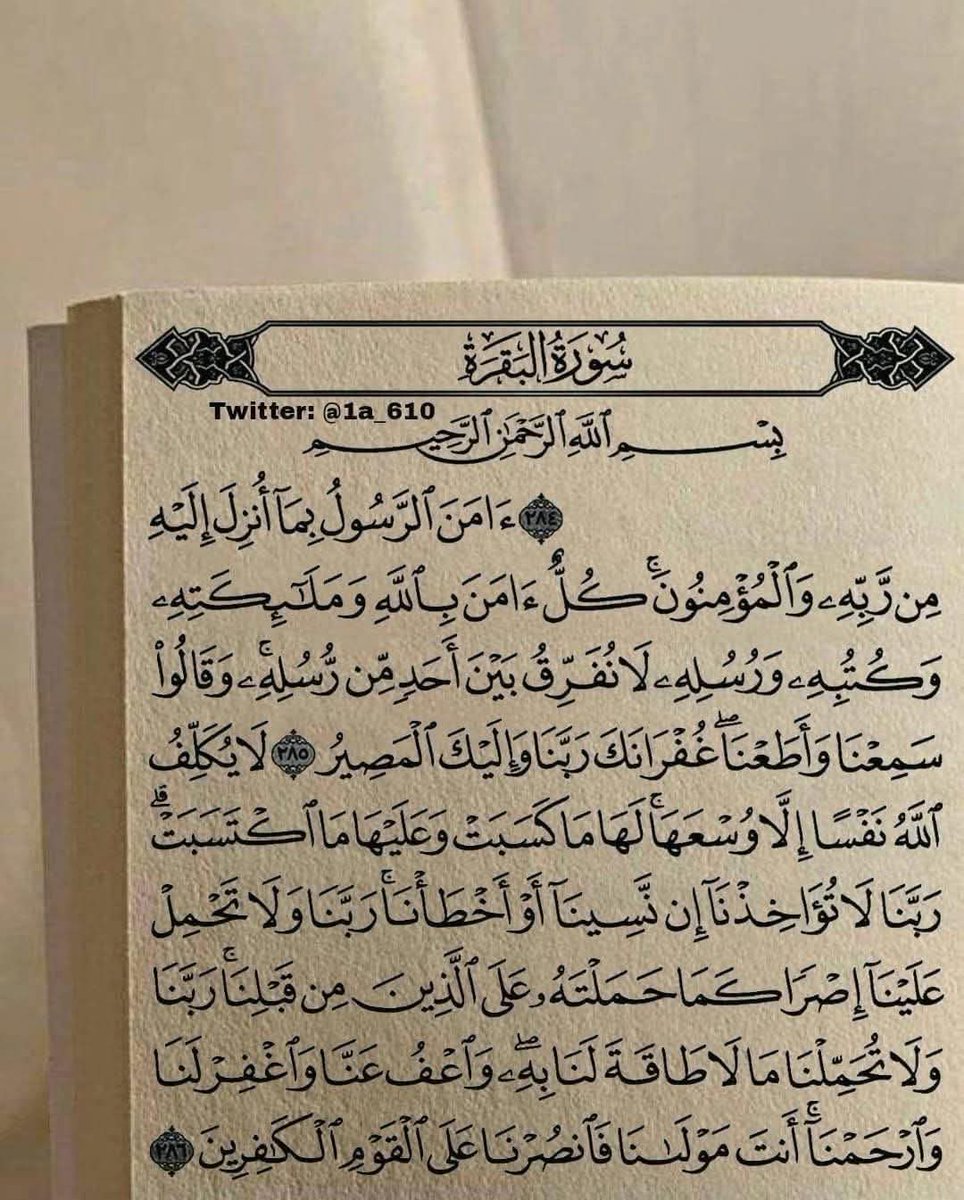 سُورَةُ البَقَرَةِ
Twitter: @1a_610
بِسْمِ ٱللَّهِ ٱلرَّحْمَٰنِ ٱلرَّحِيمِ
٢٨٤ ءَامَنَ ٱلرَّسُولُ بِمَآ أُنزِلَ إِلَيْهِ
مِن رَّبِّهِۦ وَٱلْمُؤْمِنُونَۚ كُلٌّ ءَامَنَ بِٱللَّهِ وَمَلَٰٓئِكَتِهِۦ
وَكُتُبِهِۦ وَرُسُلِهِۦ لَا نُفَرِّقُ بَيْنَ أَحَدٍ مِّن رُّسُلِهِۦۚ وَقَالُوا۟
سَمِعْنَا وَأَطَعْنَاۖ غُفْرَانَكَ رَبَّنَا وَإِلَيْكَ ٱلْمَصِيرُ ٢٨٥ لَا يُكَلِّفُ
ٱللَّهُ نَفْسًا إِلَّا وُسْعَهَاۚ لَهَا مَا كَسَبَتْ وَعَلَيْهَا مَا ٱكْتَسَبَتْۗ
رَبَّنَا لَا تُؤَاخِذْنَآ إِن نَّسِينَآ أَوْ أَخْطَأْنَاۚ رَبَّنَا وَلَا تَحْمِلْ
عَلَيْنَآ إِصْرًا كَمَا حَمَلْتَهُۥ عَلَى ٱلَّذِينَ مِن قَبْلِنَاۚ رَبَّنَا
وَلَا تُحَمِّلْنَا مَا لَا طَاقَةَ لَنَا بِهِۦۖ وَٱعْفُ عَنَّا وَٱغْفِرْ لَنَا
وَٱرْحَمْنَآۚ أَنتَ مَوْلَىٰنَا فَٱنصُرْنَا عَلَى ٱلْقَوْمِ ٱلْكَٰفِرِينَ ٢٨٦